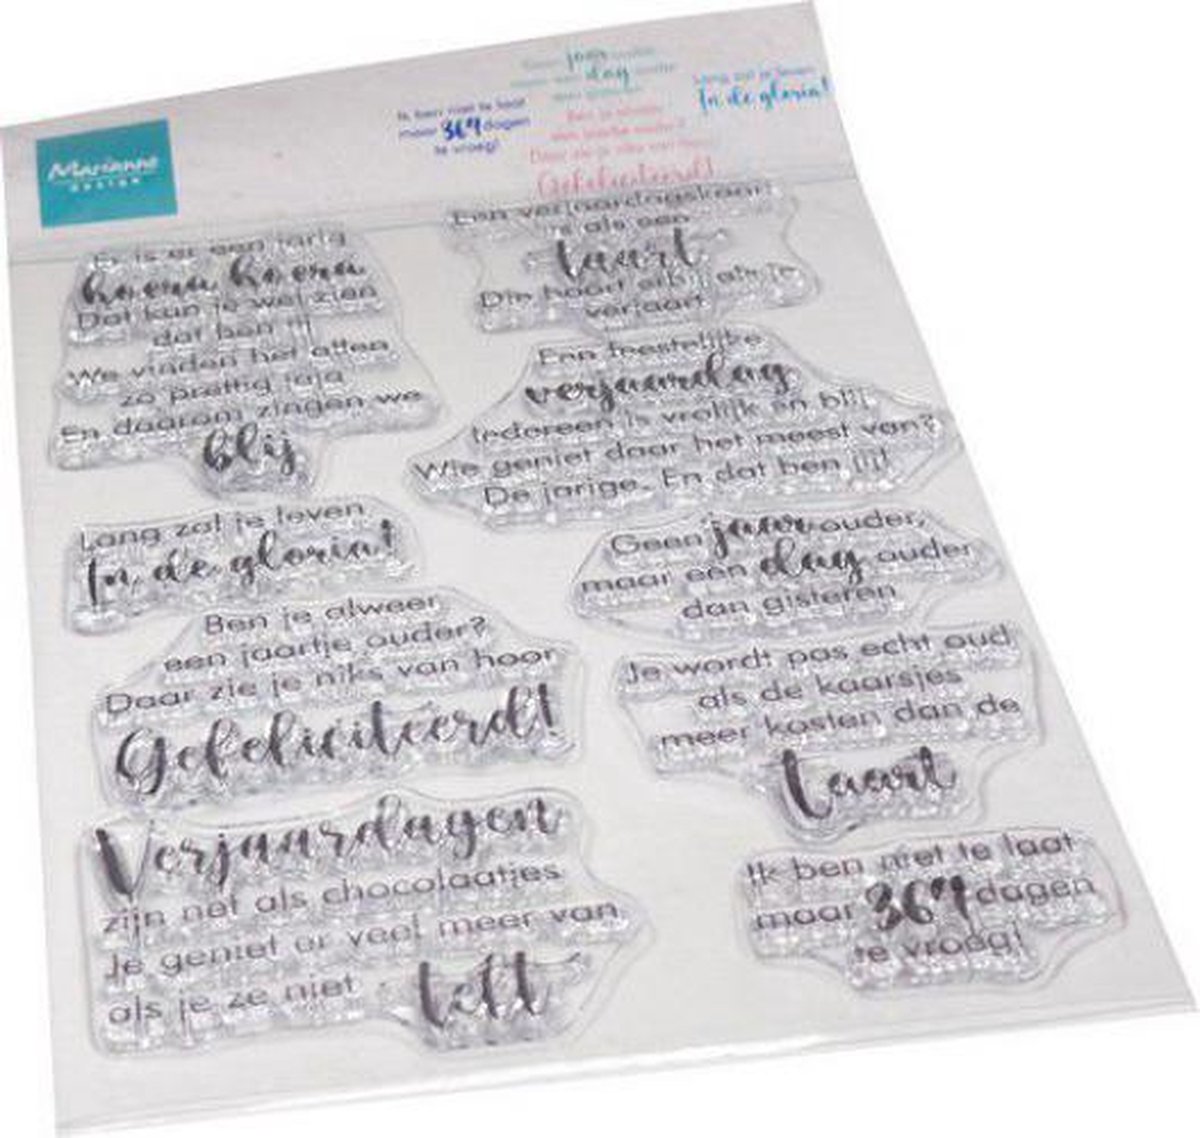 Marianne
DESIGN
Ik ben niet te laat
maar 364 dagen
te vroeg!
Geen jaar ouder
maar een dag ouder
dan gisteren
Ben je alweer
een jaartje ouder?
Daar zie je niks van hoor
Gefeliciteerd!
Lang zal je leven
In de gloria!
Er is er een jarig
hoera hoera
Dat kun je wel zien
dat ben jij
We vinden het allen
zo prettig jaja
En daarom zingen we
blij
Een verjaardagskaart
is als een
taart
Die hoort erbij als je
verjaart
Een feestelijke
verjaardag
Iedereen is vrolijk en blij
Wie geniet daar het meest van?
De jarige. En dat ben jij!
Lang zal je leven
In de gloria!
Geen jaar ouder,
maar een dag ouder
dan gisteren
Ben je alweer
een jaartje ouder?
Daar zie je niks van hoor
Gefeliciteerd!
Je wordt pas echt oud
als de kaarsjes
meer kosten dan de
taart
Verjaardagen
zijn net als chocolaatjes
Je geniet er veel meer van
als je ze niet telt
Ik ben niet te laat
maar 364 dagen
te vroeg!